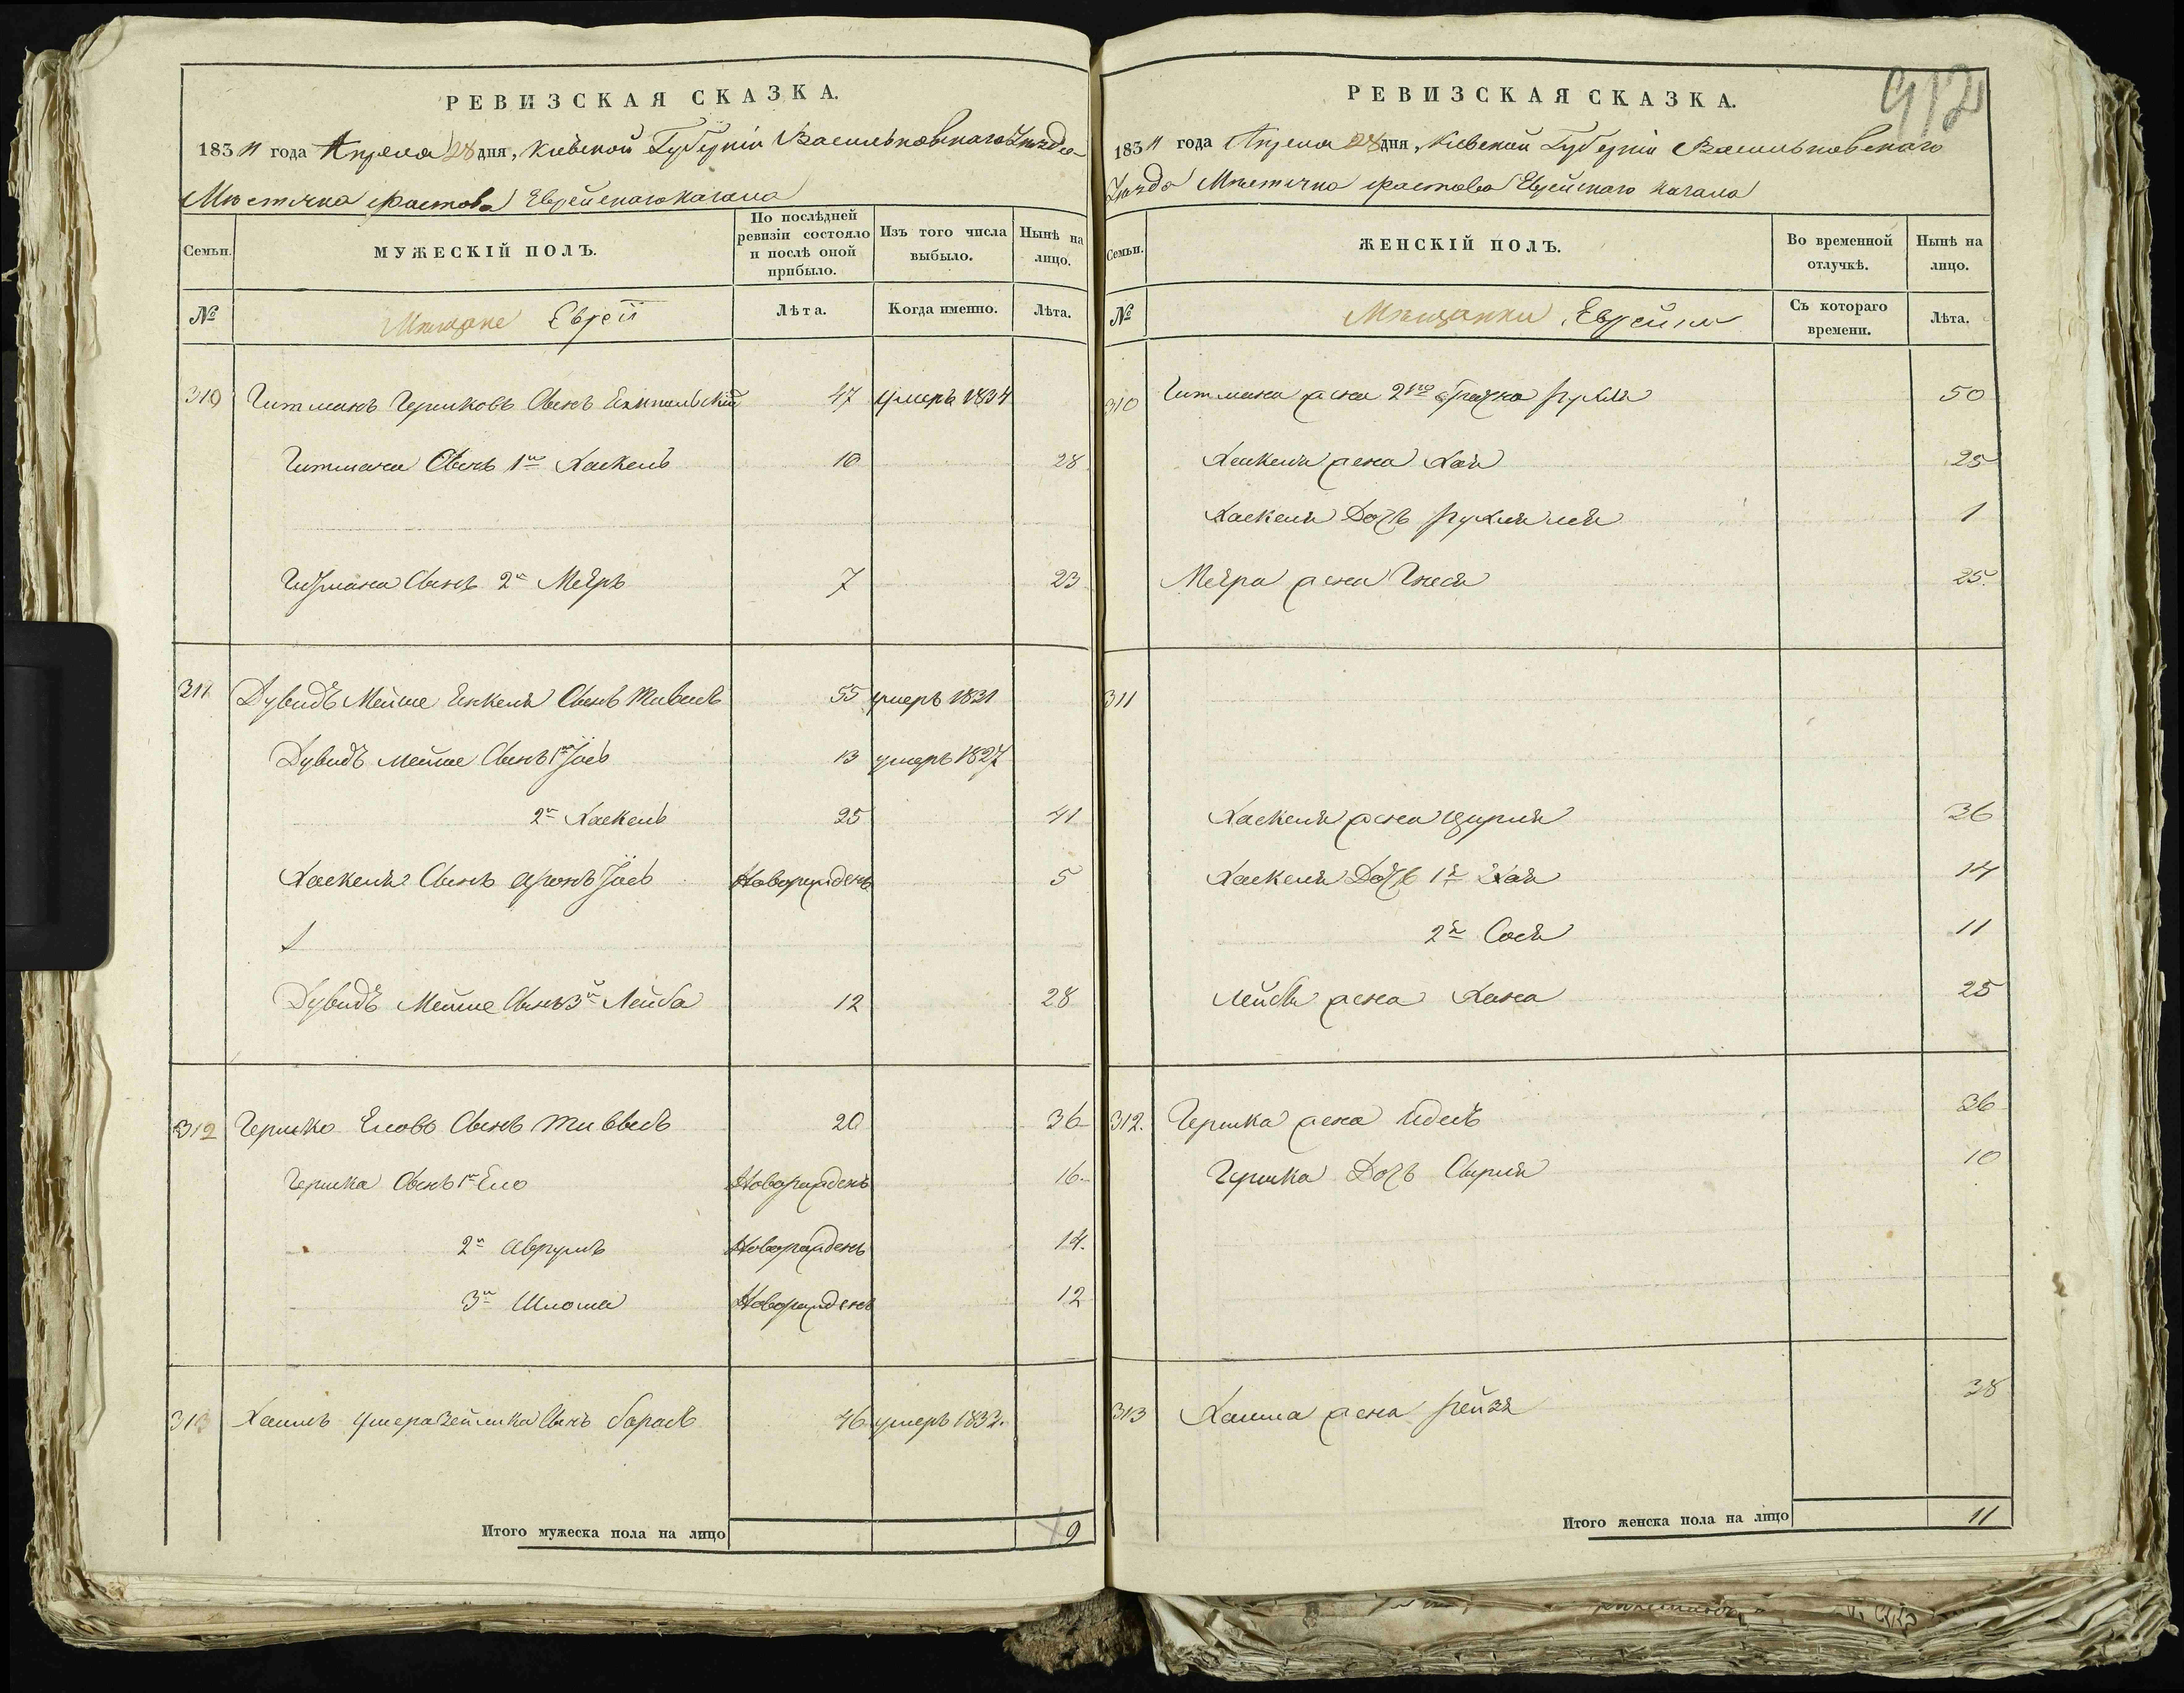 РЕВИЗСКАЯ СКАЗКА.
1834 года Апреля 28 дня, Кіевской Губерніи Васильковскаго Уезда
Местечка Фастова Еврейскаго Кагала
Семьи.
МУЖЕСКІЙ ПОЛЪ.
По послѣдней ревизіи состояло и послѣ оной прибыло.
Изъ того числа выбыло.
Нынѣ на лицо.
№
Мещане Евреи
Лѣта.
Когда именно.
Лѣта.
310 Гитманъ Гершковъ Сынъ 47 умеръ 1834
Гитмана Сынъ 1й Хаскель 10 28
Гитмана Сынъ 2й Мееръ 7 23
311 Дувидъ Мейше Янкеля Сынъ 55 умеръ 1831
Дувидъ Мейше Сынъ 1й Іосъ 13 умеръ 1827
2й Хаскель 25 41
Хаскеля Сынъ Аронъ Іосъ Новорожденъ 5
Дувидъ Мейше Сынъ 3й Лейба 12 28
312 Гершко Еловъ Сынъ 20 36
Гершка Сынъ 1й Ело Новорожденъ 16
2й Аврумъ Новорожденъ 14.
3й Шлома Новорожденъ 12
313 Хаимъ Умера Зейлика Сынъ 46 умеръ 1833.
Итого мужеска пола на лицо 9
912
РЕВИЗСКАЯ СКАЗКА.
1834 года Апреля 28 дня, Кіевской Губерніи Васильковскаго
Уезда Местечка Фастова Еврейскаго Кагала
Семьи.
ЖЕНСКІЙ ПОЛЪ.
Во временной отлучкѣ.
Нынѣ на лицо.
№
Мещанки Еврейки
Съ котораго времени.
Лѣта.
310 Гитмана жена 2го брачка Рухля 50
Хаскеля жена Хая 25
Хаскеля Дочь Рухля Лея 1
Меера жена Гнеся 25.
311
Хаскеля жена Цирля 36
Хаскеля Дочь 1я Хая 14
2я Сося 11
Лейбы жена Хана 25
312. Гершка жена Идесъ 36
Гершка Дочь Сырля 10
313 Хаима жена Рейзя 38
Итого женска пола на лицо 11